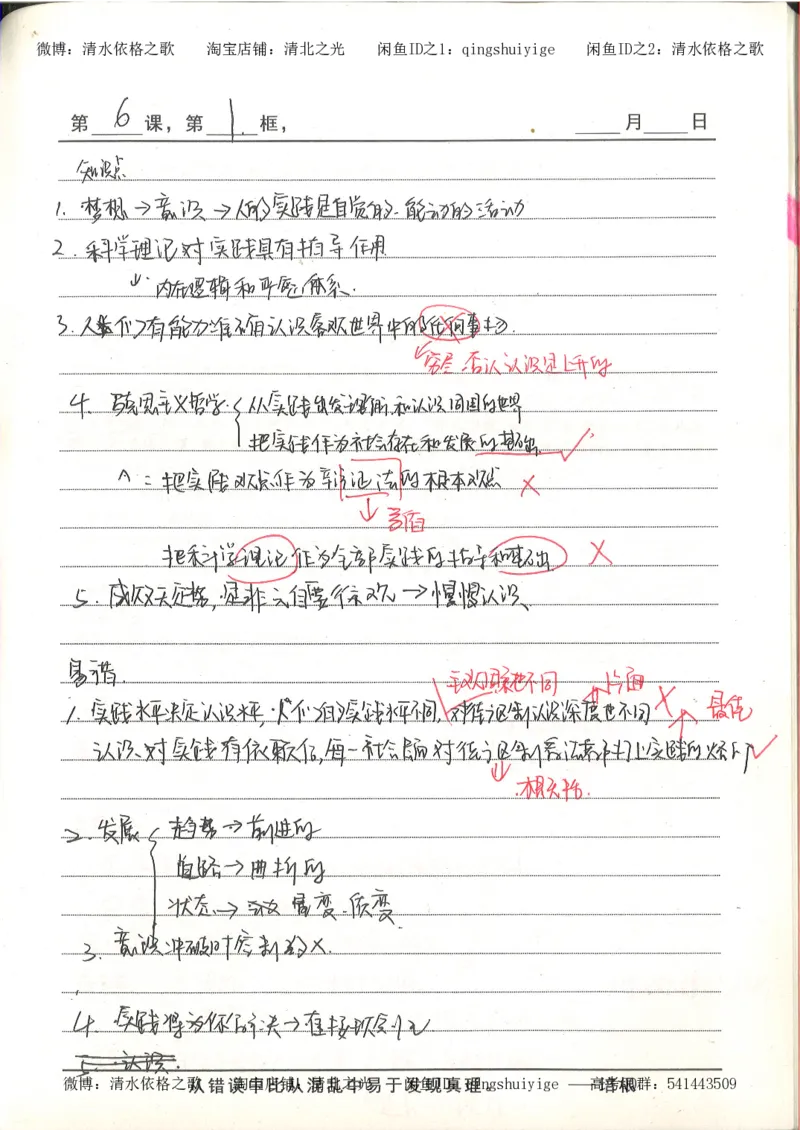 微博：清水依格之歌 淘宝店铺：清北之光 闲鱼ID之1：qingshuiyige 闲鱼ID之2：清水依格之歌
第 6 课，第 1 框， 月 日
知识点
1. 梦想→意识→人的实践是自觉的、能动的活动
2. 科学理论对实践具有指导作用
↓. 内在逻辑和严密体系.
3. 人们有能力准确认识客观世界中的任何事物.
否认认识是上升的
4. 马克思主义哲学 从实践出发理解和认识周围的世界
把实践作为社会存在和发展的基础 ✓
把实践观点作为辩证法的根本观点 ×
↓矛盾
把科学理论作为全部实践的指导和基础 ×
5. →慢慢认识、
易错.
主观因素也不同 片面 最佳
1. 实践水平决定认识水平,人们的实践水平不同,对 认识深度也不同 ×
认识对实践有依赖性,每一社会 对 实践的 ✓
↓
2. 发展 趋势→前进的
道路→曲折的
状态→ 量变、质变
3. 意识冲破时 ×.
4. 实践 →直接现实性
5. 认识.
从错误中比从混乱中易于发现真理。 ——培根
微博：清水依格之歌 淘宝店铺：清北之光 闲鱼ID：qingshuiyige 群：541443509